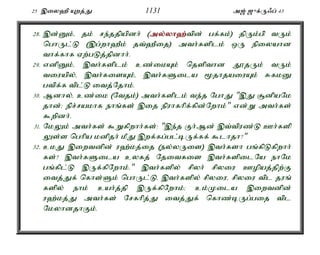 25 இலைஹி யுறத்து 1131 அஜ் ஜுக்ருஃப் 43
28. இன்னும், தம் சந்ததியினர் (அல்லாஹ்வின் பக்கம்) திரும்பி வரும்
பொருட்டு (இப்றாஹீம் தவ்ஹீதை) அவர்களிடம் ஒரு நிலையான
வாக்காக ஏற்படுத்தினார்.
29. எனினும், இவர்களிடம் உண்மையும் தெளிவான தூதரும் வரும்
வரையில், இவர்களையும், இவர்களுடைய மூதாதையரையும் சுகமனு
பவிக்க விட்டு வைத்தோம்.
30. ஆனால், உண்மை (வேதம்) அவர்களிடம் வந்த போது "இது சூனியமே
தான்; நிச்சயமாக நாங்கள் இதை நிராகரிக்கின்றோம்" என்று அவர்கள்
கூறினர்.
31. மேலும் அவர்கள் கூறுகிறார்கள்: "இந்த குர்ஆன் இவ்விரண்டு ஊர்களி
லுள்ள பெரிய மனிதர் மீது இறக்கப்பட்டிருக்கக் கூடாதா?"
32. உமது இறைவனின் ரஹ்மத்தை (நல்லருளை) இவர்களா பங்கிடுகிறார்
கள்? இவர்களுடைய உலகத் தேவைகளை இவர்களிடையே நாமே
பங்கிட்டு இருக்கிறோம்." இவர்களில் சிலர் சிலரை ஊழியத்திற்கு
வைத்துக் கொள்ளும் பொருட்டு, இவர்களில் சிலரை, சிலரை விட தரங்
களில் நாம் உயர்த்தி இருக்கிறோம்; உம்முடைய இறைவனின்
ரஹ்மத்து அவர்கள் சேகரித்து வைத்துக் கொண்டிருப்பதை விட
மேலானதாகும்.